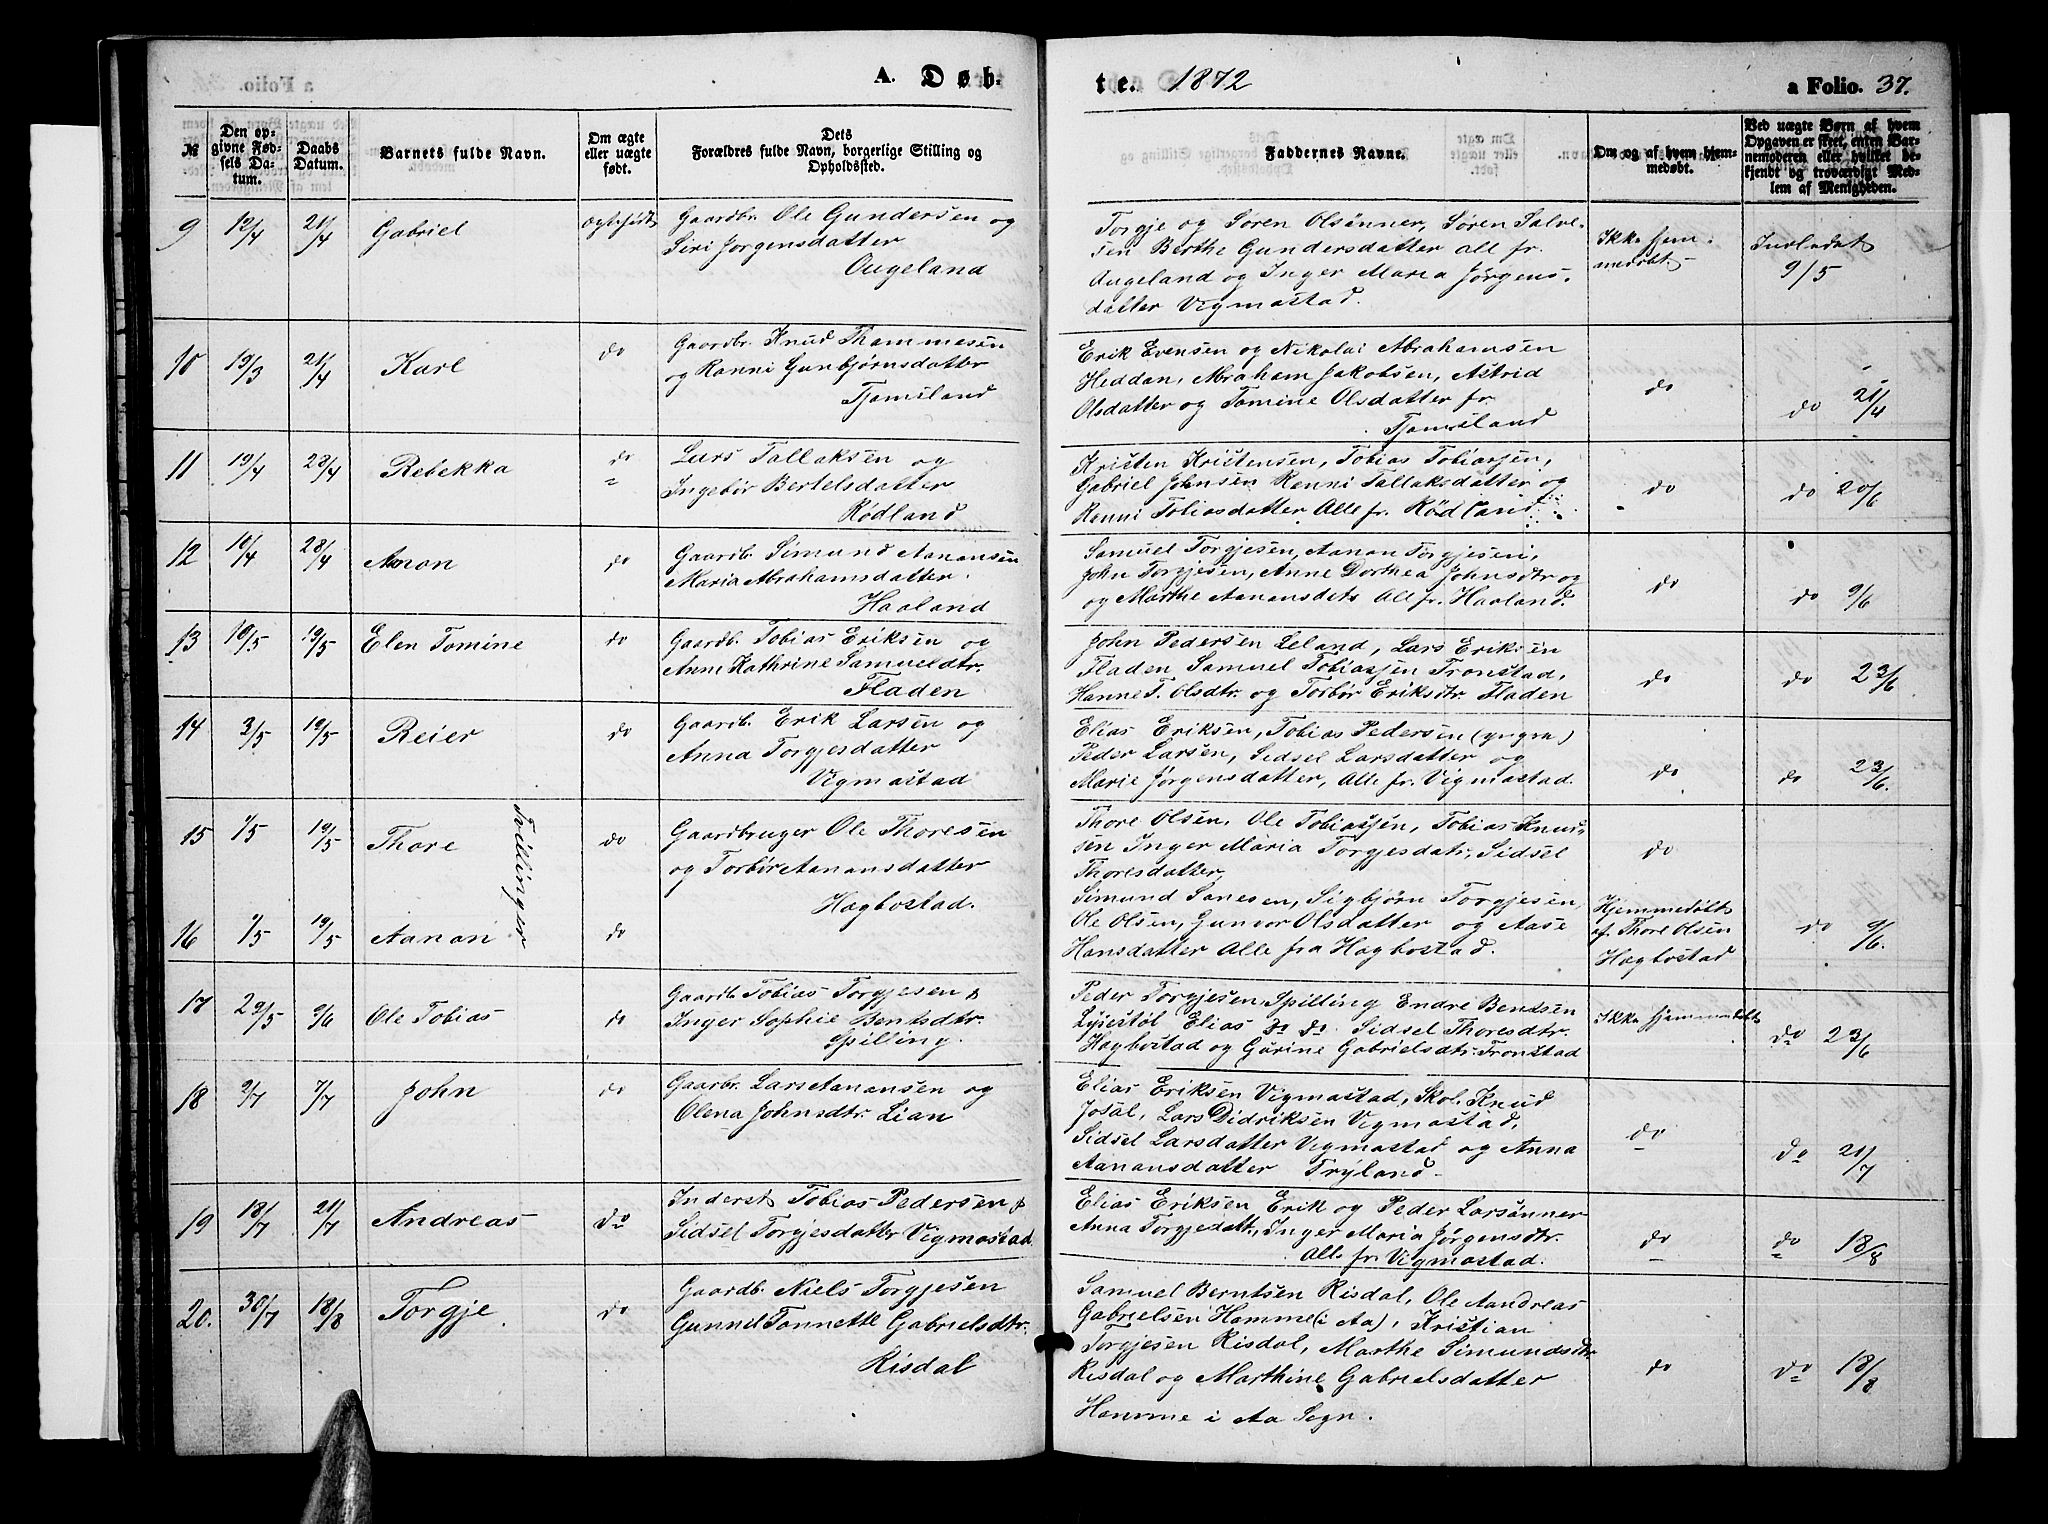 A. Døb-
te. 1872
a Folio. 37.
№
Den op-
givne Fød-
sels Da-
tum.
Daabs
Datum.
Barnets fulde Navn.
Om ægte
eller uægte
født.
Dets
Forældres fulde Navn, borgerlige Stilling og
Opholdssted.
Faddernes Navne.
Om og af hvem hjem-
medøbt.
Ved uægte Børn af hvem
Opgaven er skeet, enten Bar-
nemoderen eller hvilket be-
kjendt og troværdigt Med-
lem af Menigheden.
9 12/4 21/4 Gabriel ægtefødt
Gaardbr. Ole Gundersen og
Siri Jorgensdatter
Ougeland
Torgje og Søren Olsønner, Søren Salve-
sen Berthe Gundersdatter all fr.
Augeland og Inger Maria Jørgens-
datter Vigmostad.
Ikke hjem-
medøbt
9/5
10 19/3 21/4 Karl do
Gaardbr. Knud Thommesen
og Ranni Gunbjørnsdatter
Tjomsland
Erik Evensen og Nikolai Abrahamsen
Heddan, Abraham Jakobsen, Astrid
Olsdatter og Tomine Olsdatter fr.
Tjomsland
do
do 21/4
11 19/4 28/4 Rebekka do
Lars Tallaksen og
Ingebør Bertelsdatter
Rødland
Kristen Kristensen, Tobias Tobiassen,
Gabriel Johnsen Renni Tallaksdatter og
Renni Tobiasdatter Alle fr. Rødland
do
do 20/6
12 10/4 28/4 Anon do
Gaardb. Simund Aanansen
Maria Abrahamsdatter.
Haaland
Samuel Torgjesen, Aanan Torgjesen,
John Torgjesen, Anne Dorthea Johnsdtr og
og Marthe Aanansdatr Alle fr. Haaland.
do
do 9/6
13 10/5 19/5 Elen Tomine do
Gaardb. Tobias Eriksen og
Anne Kathrine Samueldtr.
Fladen
John Pedersen Leland, Lars Eriksen
Fladen Samuel Tobiassen Tronstad,
Hanne T. Olsdtr. og Torbør Eriksdtr. Fladen
do
do 23/6
14 3/5 19/5 Reier do
Gaardb. Erik Larsen og
Anna Torgjesdatter
Vigmostad
Elias Eriksen, Tobias Pedersen (yngre)
Peder Larsen, Sidsel Larsdatter og
Marie Jørgensdatter, Alle fr. Vigmostad.
do
do 23/6.
15 1/5 19/5 Thore do
Tvillinger
Gaardbruger Ole Thoresen
og Torbør Aanansdatter
Hogbostad.
Thore Olsen, Ole Tobiassen, Tobias Knud-
sen Inger Maria Torgjesdatr, Sidsel
Thoresdatter
do
16 1/5 19/5 Aanon do
Simund Sanesen, Sigbjørn Torgjesen,
Ole Olsen, Gunvor Olsdatter og Aase
Hansdatter Alle fra Hogbostad.
Hjemmedøbt
af Thore Olsen
Hogbostad
do 9/6.
17 29/5 9/6 Ole Tobias do
Gaardb. Tobias Torgjesen &
Inger Sophie Bentsdtr.
Spilling.
Peder Torgjesen Spilling Endre Bentsen
Lysestøl Elias do do. Sidsel Thoresdtr.
Hogbostad og Gurine Gabrielsdtr. Tronstad
Ikke hjemmedøbt
do 23/6
18 2/7 7/7 John do
Gaarbr. Lars Aanansen og
Olena Johnsdtr. Lian
Elias Eriksen Vigmostad, Skol. Knud
Josal, Lars Didriksen Vigmostad,
Sidsel Larsdatter Vigmostad og Anna
Aanansdatter Tryland.
do
do 21/7
19 18/7 21/7 Andreas do
Inderst Tobias Pedersen &
Sidsel Torgjesdatter Vigmostad.
Elias Eriksen Erik og Peder Larsønner
Anna Torgjedatr., Inger Maria Jørgensdtr.
Alle fr. Vigmostad.
do
do 18/8
20. 30/7 18/8 Torgje. do
Gaardb. Niels Torgjesen
Gunnel Tonnette Gabrielsdtr.
Risdal
Samuel Berntsen Risdal, Ole Aandreas
Gabrielsen Homme (i Aa), Kristian
Torgjesen Risdal, Marthe Simundsdtr
Risdal og Marthine Gabrielsdatter
Homme i Aa Sogn.
do
do 18/8